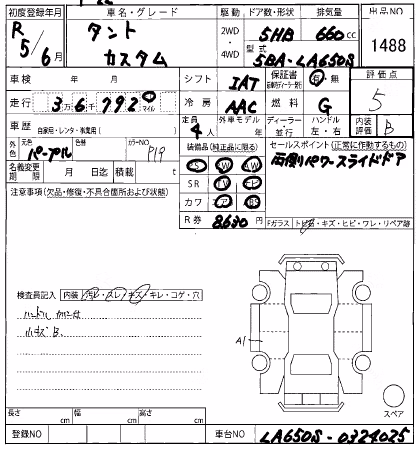 初度登録年月 車名・グレード 駆動 ドア数・形状 排気量 出品NO
R 5/6月 タント カスタム 2WD・4WD 5HB 660cc 1488
型式 5BA-LA650S
車検 年 月 シフト IAT 保証書 有・無 評価点
走行 3万6千792 km マイル 冷房 AAC 燃料 G 5
車歴 自家用・レンタ・事業用( ) 定員 4人 外車モデル 年 ディーラー・並行 ハンドル 左・右 内装評価 B
外色 元色 パープル 色替 カラーNO P19 装備品(純正品に限る) セールスポイント(正常に作動するもの)
名義変更期限 月 日迄 積載 t PS SW AW 両側パワースライドドア
注意事項(欠品・修復・不具合箇所および状態) SR TV ナビ
カワ
R券 8630円 Fガラス トビ・キズ・ヒビ・ワレ・リペア跡
検査員記入 内装 汚レ・スレ・キズ・キレ・コゲ・穴
小キズB.
A1
スペア
長さ cm 幅 cm 高さ cm
登録NO 車台NO LA650S-0324025